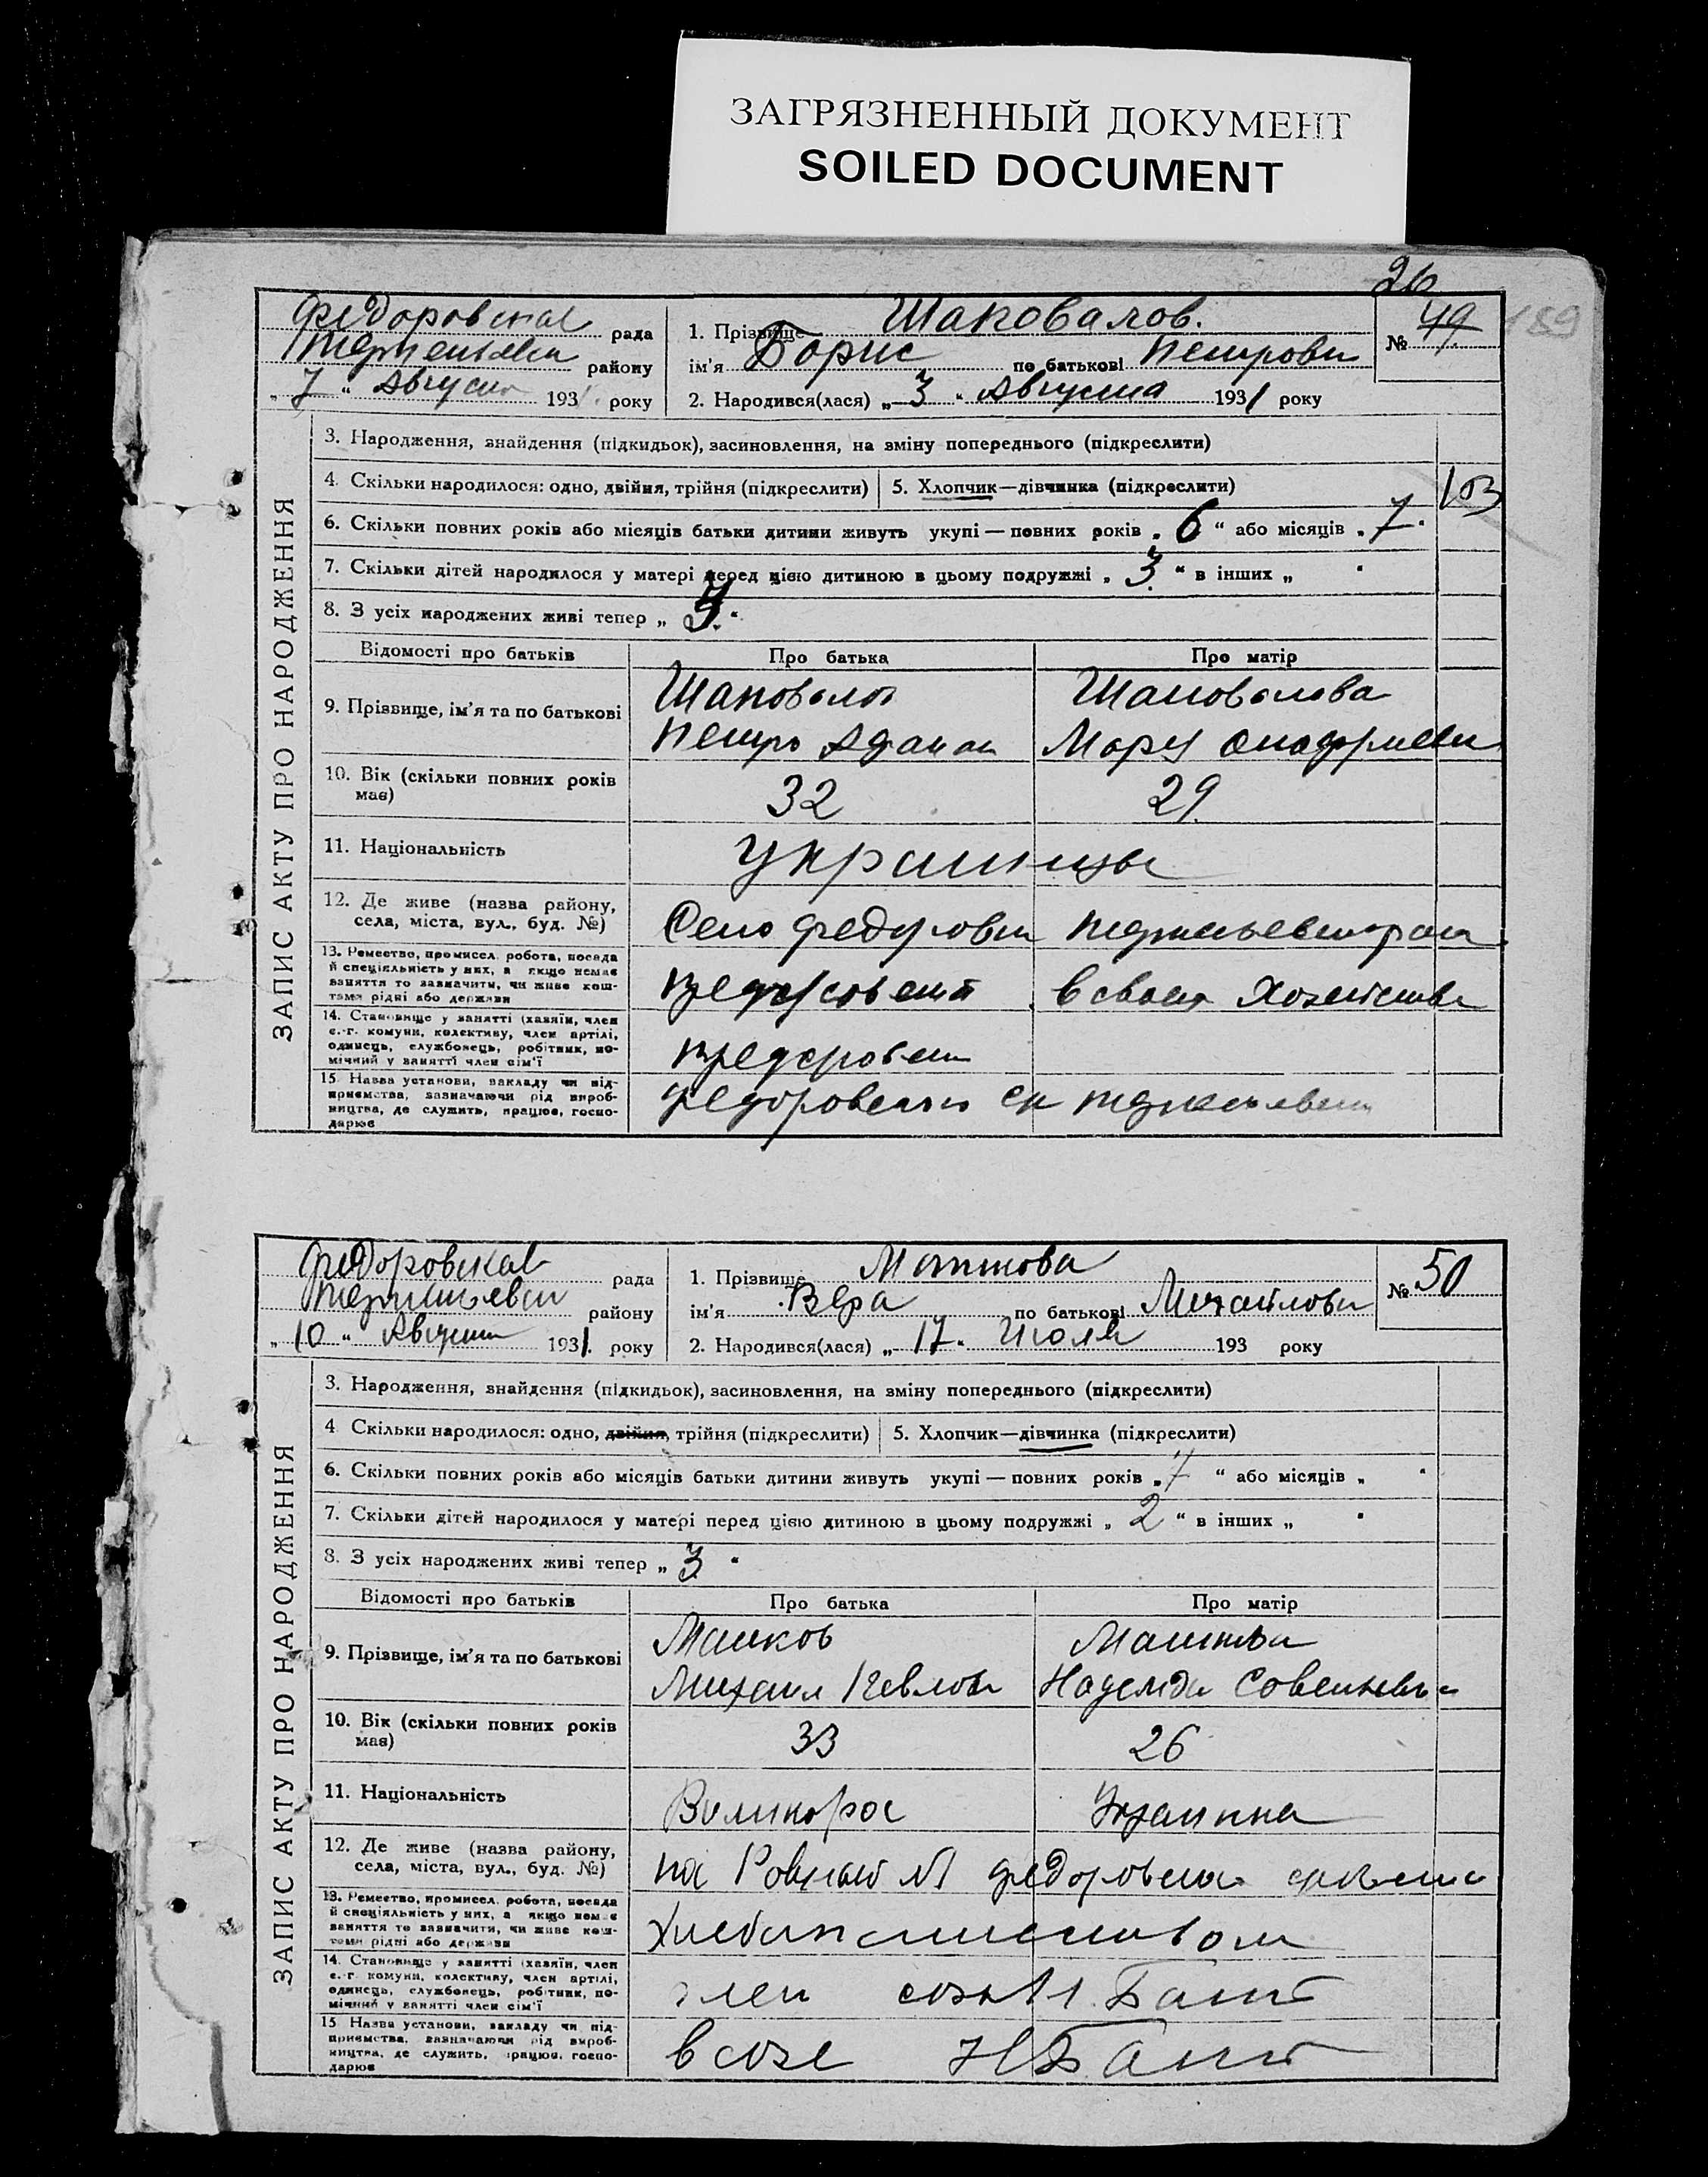 ЗАГРЯЗНЕННЫЙ ДОКУМЕНТ
SOILED DOCUMENT
26
189
ЗАПИС АКТУ ПРО НАРОДЖЕННЯ
Федоровская рада
району
„7“ Августа 193 року
1. Прізвище Шаповалов.
ім'я Борис по батькові Петрови
2. Народився(лася) „3“ Августа 1931 року
№ 49
3. Народження, знайдення (підкидьок), засиновлення, на зміну попереднього (підкреслити)
4. Скільки народилося: одно, двійня, трійня (підкреслити) 5. Хлопчик—дівчинка (підкреслити)
103
6. Скільки повних років або місяців батьки дитини живуть укупі — повних років „6“ або місяців „7“
7. Скільки дітей народилося у матері перед цією дитиною в цьому подружжі „3“ в інших „ “
8. З усіх народжених живі тепер „ “
Відомості про батьків Про батька Про матір
9. Прізвище, ім'я та по батькові
Шаповалов Шаповалова
Петро Афанас Мария
10. Вік (скільки повних років має) 32 29
11. Національність украинцы
12. Де живе (назва району, села, міста, вул., буд. №)
Село Федоровка
13. Ремество, промисел. робота, посада й спеціяльність у них, а якщо немає заняття то зазначити, чи живе коштами рідні або держави
в своем хозяйстве
14. Становище у занятті (хазяїн, член с.-г. комуни, колективу, член артілі, одинець, службовець, робітник, помічний у занятті член сім'ї
15. Назва установи, закладу чи підприємства, зазначаючи рід виробництва, де служить, працює, господарює
ЗАПИС АКТУ ПРО НАРОДЖЕННЯ
Федоровская рада
району
„10“ Августа 1931. року
1. Прізвище
ім'я Вера по батькові Михайловн
2. Народився(лася) „17“ Июля 193 року
№ 50
3. Народження, знайдення (підкидьок), засиновлення, на зміну попереднього (підкреслити)
4. Скільки народилося: одно, двійня, трійня (підкреслити) 5. Хлопчик—дівчинка (підкреслити)
6. Скільки повних років або місяців батьки дитини живуть укупі — повних років „7“ або місяців „ “
7. Скільки дітей народилося у матері перед цією дитиною в цьому подружжі „2“ в інших „ “
8. З усіх народжених живі тепер „3“
Відомості про батьків Про батька Про матір
9. Прізвище, ім'я та по батькові
Михаил Надежда
10. Вік (скільки повних років має) 33 26
11. Національність Великорос Украинка
12. Де живе (назва району, села, міста, вул., буд. №)
13. Ремество, промисел. робота, посада й спеціяльність у них, а якщо немає заняття то зазначити, чи живе коштами рідні або держави
хлебопашеством
14. Становище у занятті (хазяїн, член с.-г. комуни, колективу, член артілі, одинець, службовець, робітник, помічний у занятті член сім'ї
член
15. Назва установи, закладу чи підприємства, зазначаючи рід виробництва, де служить, працює, господарює
в созе